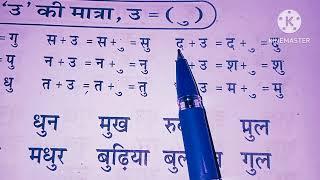 'उ' की मात्रा, उ = ( ु )
= गु स + उ = स + ु = सु द + उ = द + ु = दु
= पु न + उ = न + ु = नु + उ = श + ु = शु
धु त + उ = त + ु = तु + उ = म + ु = मु
धुन मुख पुल
मधुर बुढ़िया गुल
KINEMASTER